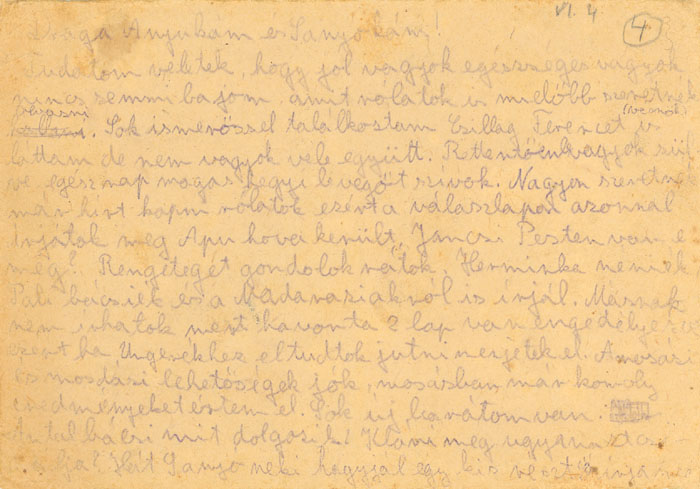 VI. 4
4
Drága Anyukám és Sanyókám!
Tudatom veletek, hogy jól vagyok egészséges vagyok
nincs semmi bajom, amit rólatok is mielőbb szeretnék
olvasni. Sok ismerőssel találkoztam Csillag Ferencet is
láttam de nem vagyok vele együtt. vagyok
ve egész nap magas hegyi levegőt szívok. Nagyon szeretnék
már hírt kapni rólatok ezért a válaszlapon azonnal
írjátok meg Apu hova került, Jancsi Pesten van e
még! Rengeteget gondolok rátok. Herminka néniék
Pali bácsiék és a Madarasiakról is írjál. Másnak
nem írhatok mert havonta 2 lap van engedélyezve
ezért ha Ungerékhez el tudtok jutni menjetek el. A mosási
és mosdási lehetőségek jók, mosásban már komoly
eredményeket értem el. Sok új barátom van.
Antal bácsi mit dolgozik! Klári még ugyanazt
Hát Sanyó neki hagyjál egy kis részt írjon